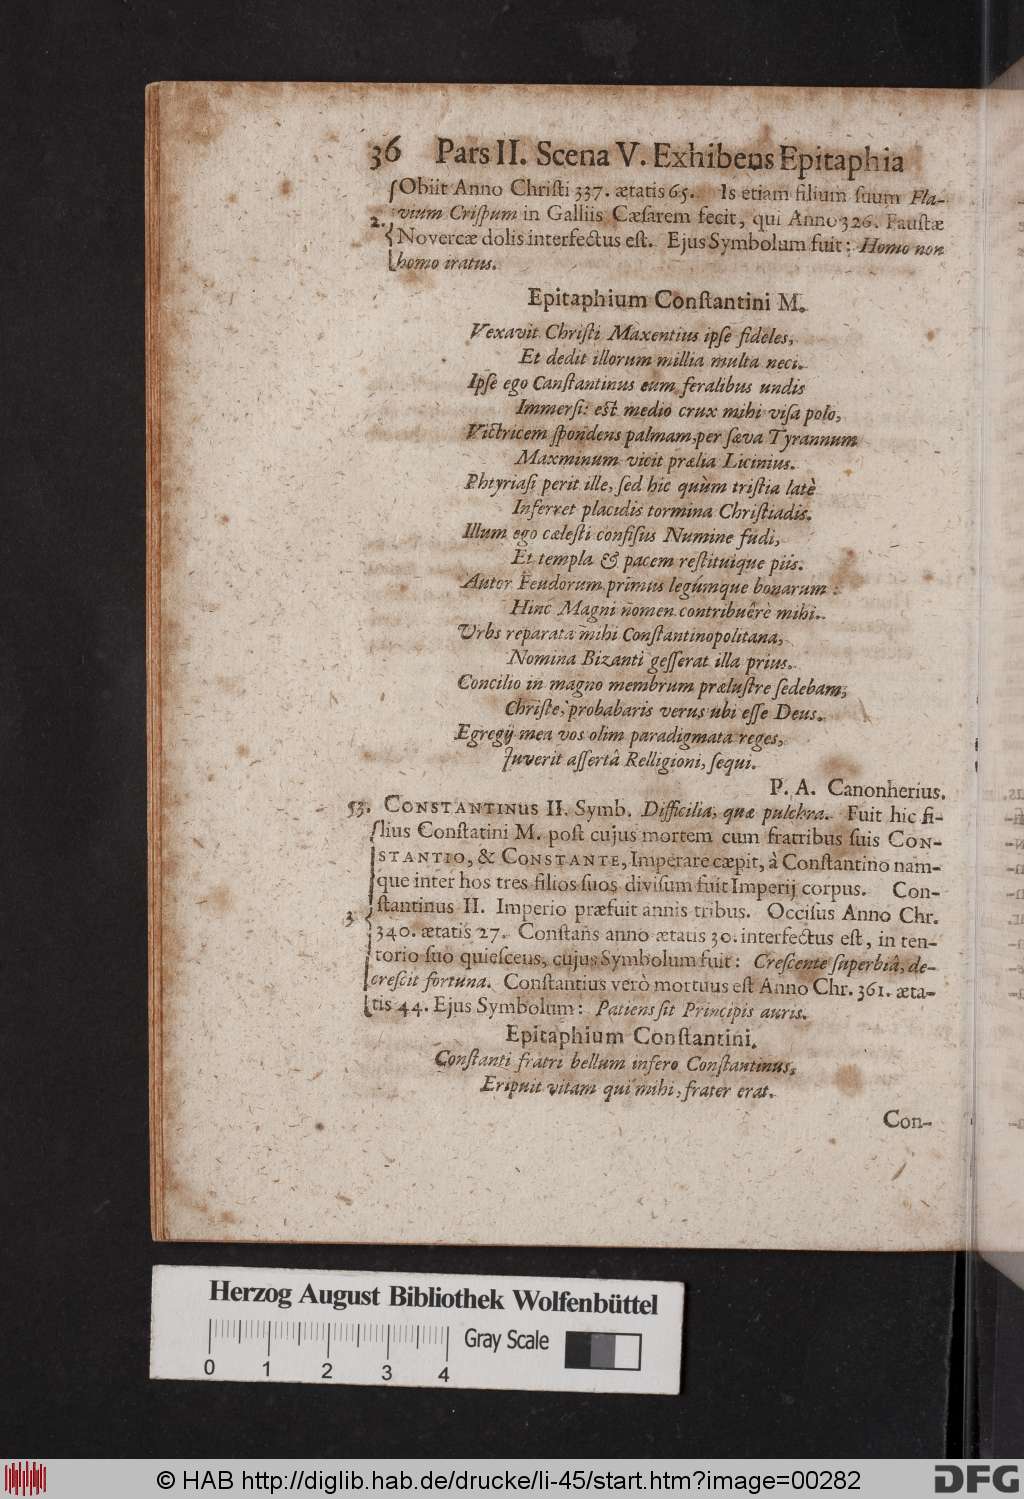 36 Pars II. Scena V. Exhibens Epitaphia
Obiit Anno Chriſti 337. ætatis 65. Is etiam filium ſuum Fla-
2. vium Criſpum in Galliis Cæſarem fecit, qui Anno 326. Fauſtæ
Novercæ dolis interfectus eſt. Ejus Symbolum fuit: Homo non
homo iratus.
Epitaphium Conſtantini M.
Vexavit Chriſti Maxentius ipſe fideles,
Et dedit illorum millia multa neci.
Ipſe ego Canſtantinus eum feralibus undis
Immerſi: eſt medio crux mihi viſa polo,
Victricem ſpondens palmam, per ſæva Tyrannum
Maxminum vicit prælia Licinius.
Phtyriaſi perit ille, ſed hic quùm triſtia latè
Inferret placidis tormina Chriſtiadis.
Illum ego cæleſti confiſus Numine fudi,
Et templa & pacem reſtituique piis.
Autor Feudorum primus legumque bonarum:
Hinc Magni nomen contribuêrè mihi.
Vrbs reparata mihi Conſtantinopolitana,
Nomina Bizanti geſſerat illa prius.
Concilio in magno membrum præluſtre ſedebam,
Chriſte, probabaris verus ubi eſſe Deus.
Egregij mea vos olim paradigmata reges,
Juverit aſſertâ Relligioni, ſequi.
P. A. Canonherius.
53. CONSTANTINUS II. Symb. Difficilia, quæ pulchra. Fuit hic fi-
lius Conſtatini M. poſt cujus mortem cum fratribus ſuis CON-
STANTIO, & CONSTANTE, Imperare cæpit, à Conſtantino nam-
que inter hos tres filios ſuos diviſum fuit Imperij corpus. Con-
3 ſtantinus II. Imperio præfuit annis tribus. Occiſus Anno Chr.
340. ætatis 27. Conſtans anno ætatis 30. interfectus eſt, in ten-
torio ſuo quieſcens, cujus Symbolum fuit: Creſcente ſuperbiâ, de-
creſcit fortuna. Conſtantius verò mortuus eſt Anno Chr. 361. æta-
tis 44. Ejus Symbolum: Patiens ſit Principis auris.
Epitaphium Conſtantini.
Conſtanti fratri bellum infero Conſtantinus,
Eripuit vitam qui mihi, frater erat.
Con-
Herzog August Bibliothek Wolfenbüttel
Gray Scale
0 1 2 3 4
© HAB http://diglib.hab.de/drucke/li-45/start.htm?image=00282
DFG